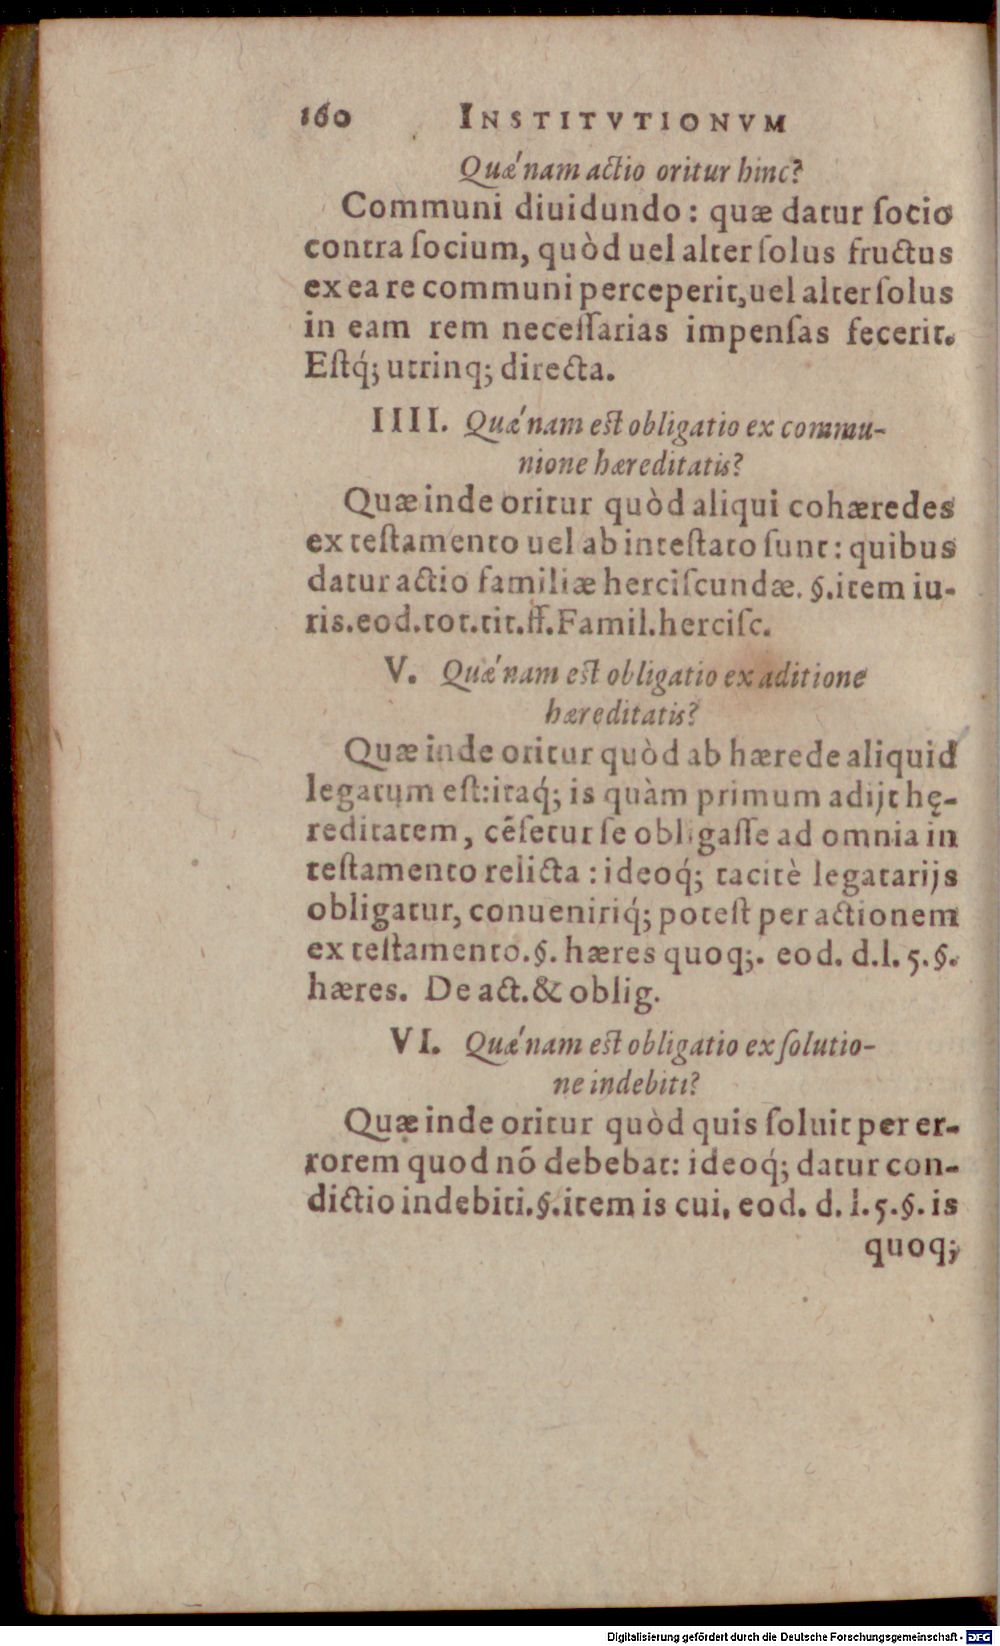 160 INSTITVTIONVM
Quǽnam actio oritur hinc?
Communi diuidundo: quæ datur ſocio
contra ſocium, quòd uel alter ſolus fructus
ex ea re communi perceperit, uel alter ſolus
in eam rem neceſſarias impenſas fecerit.
Eſtq́; utrinq; directa.
IIII. Quǽnam est obligatio ex commu-
nione hæreditatis?
Quæ inde oritur quòd aliqui cohæredes
ex teſtamento uel ab inteſtato ſunt: quibus
datur actio familiæ herciſcundæ. §. item iu-
ris. eod. tot. tit. ff. Famil. herciſc.
V. Quǽnam est obligatio ex aditione
hæreditatis?
Quæ inde oritur quòd ab hærede aliquid
legatum eſt: itaq́; is quàm primum adijt hę-
reditatem, cẽſetur ſe obligaſſe ad omnia in
teſtamento relicta: ideoq́; tacitè legatarijs
obligatur, conueniriq́; poteſt per actionem
ex teſtamento. §. hæres quoq;. eod. d. l. 5. §.
hæres. De act. & oblig.
VI. Quǽnam est obligatio ex ſolutio-
ne indebiti?
Quæ inde oritur quòd quis ſoluit per er-
rorem quod nõ debebat: ideoq́; datur con-
dictio indebiti. §. item is cui, eod. d. l. 5. §. is
quoq;
Digitalisierung gefördert durch die Deutsche Forschungsgemeinschaft - DFG